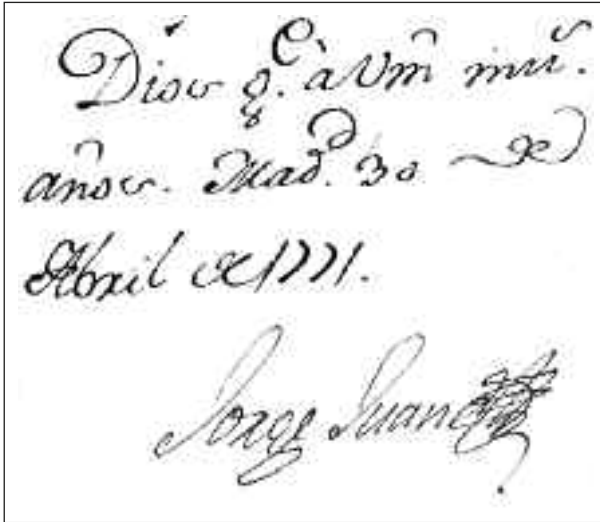 Dios g.e à Vm̃ mũ.
años. Mad.d 30 de
Abril de 1771.
Jorge Juan